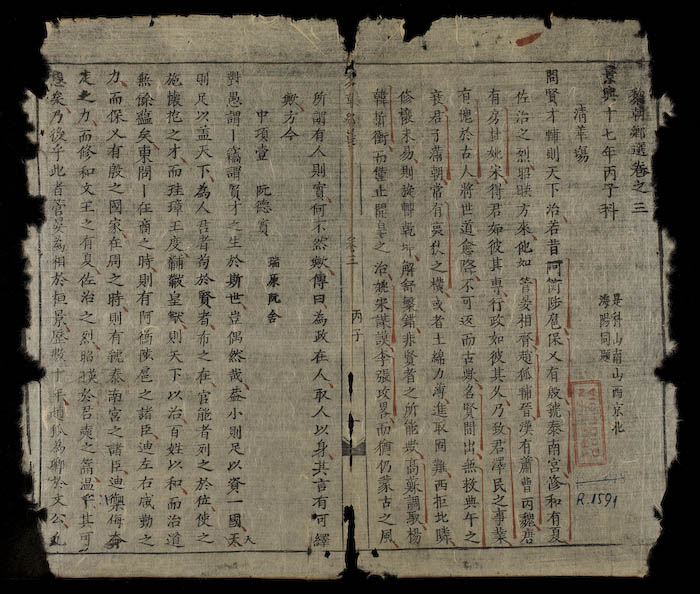 朝鄉選卷之三
景興十七年丙子科
是科山南山西京北
海陽同題
清華塲
問賢才輔則天下治若昔阿衡陟扈保乂有殷虢泰南宮修和有夏
佐治之烈昭映方來他如管晏相齊趙狐輔晉漢有蕭曹丙魏唐
有房杜姚宋得君如彼其專行政如彼其久乃致君澤民之事業
有愧於古人將世道愈降不可返而古歟名賢間出無救典午之
衰君子滿朝當有之橫或者土綿力薄進取罔難西拒北隣
修攘未易則旋轉乾坤解舒盤錯非賢者之所能歟高蘇調馭楊
韓折衝而僅止開皇之治姚宋謀謨李張攻畧而猶仍蒙古之風
R.1591
卷三
丙子
所謂有人則實何不然歟傳曰為政在人取人以身其言有可繹
歟方今
瑞原阮舍
中項堂 阮德賓
對愚謂竊謂賢才之生於斯世豈偶然哉蓋小則足以資一國大
則足以蓋天下為人君者苟於賢者布之在官能者列之於位使之
施懷抱之才而珪璋王度黼黻皇猷則天下以治百姓以和而治道
無係蘊矣東閣一在商之時則有阿衡陟扈之諸臣迪左右咸勤之
力而保乂有殷之國家在周之時則有虢泰南宮之諸臣迪禦侮奔
走之力而修和文王之有夏佐治之烈昭映於召奭之篇溫乎其可
想矣乃後乎此者管晏為相於桓景歷數十年趙狐為卿於文公